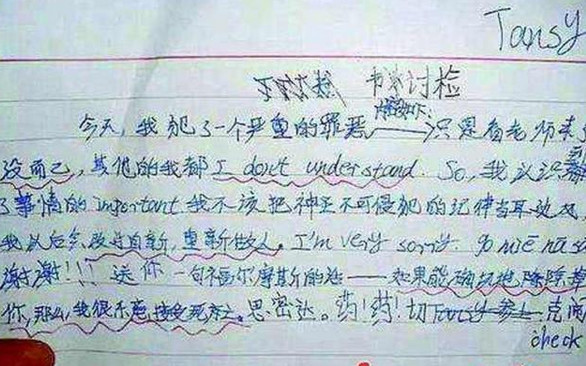 Tansy
书求讨检
今天,我犯了一个严重的罪恶——只是看老师来
没而已,其他的我都 I don't understand. So,我认识
了事情的 important 我不该把神圣不可侵犯的纪律当耳边
我以后会改过自新,重新做人。I'm very sorry.
谢谢!!!送你一句福尔摩斯的话——如果能确切地除
你,那么,我很乐意接受死亡。思密达。药!药!切
check